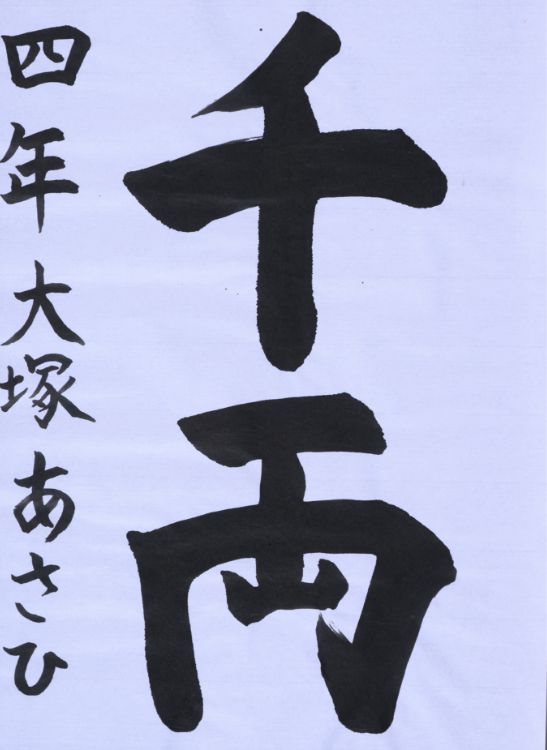 千両
四年大塚あさひ